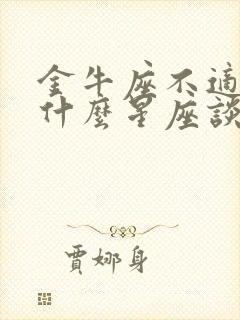 金牛座不適
什麼星座談
賈娜身